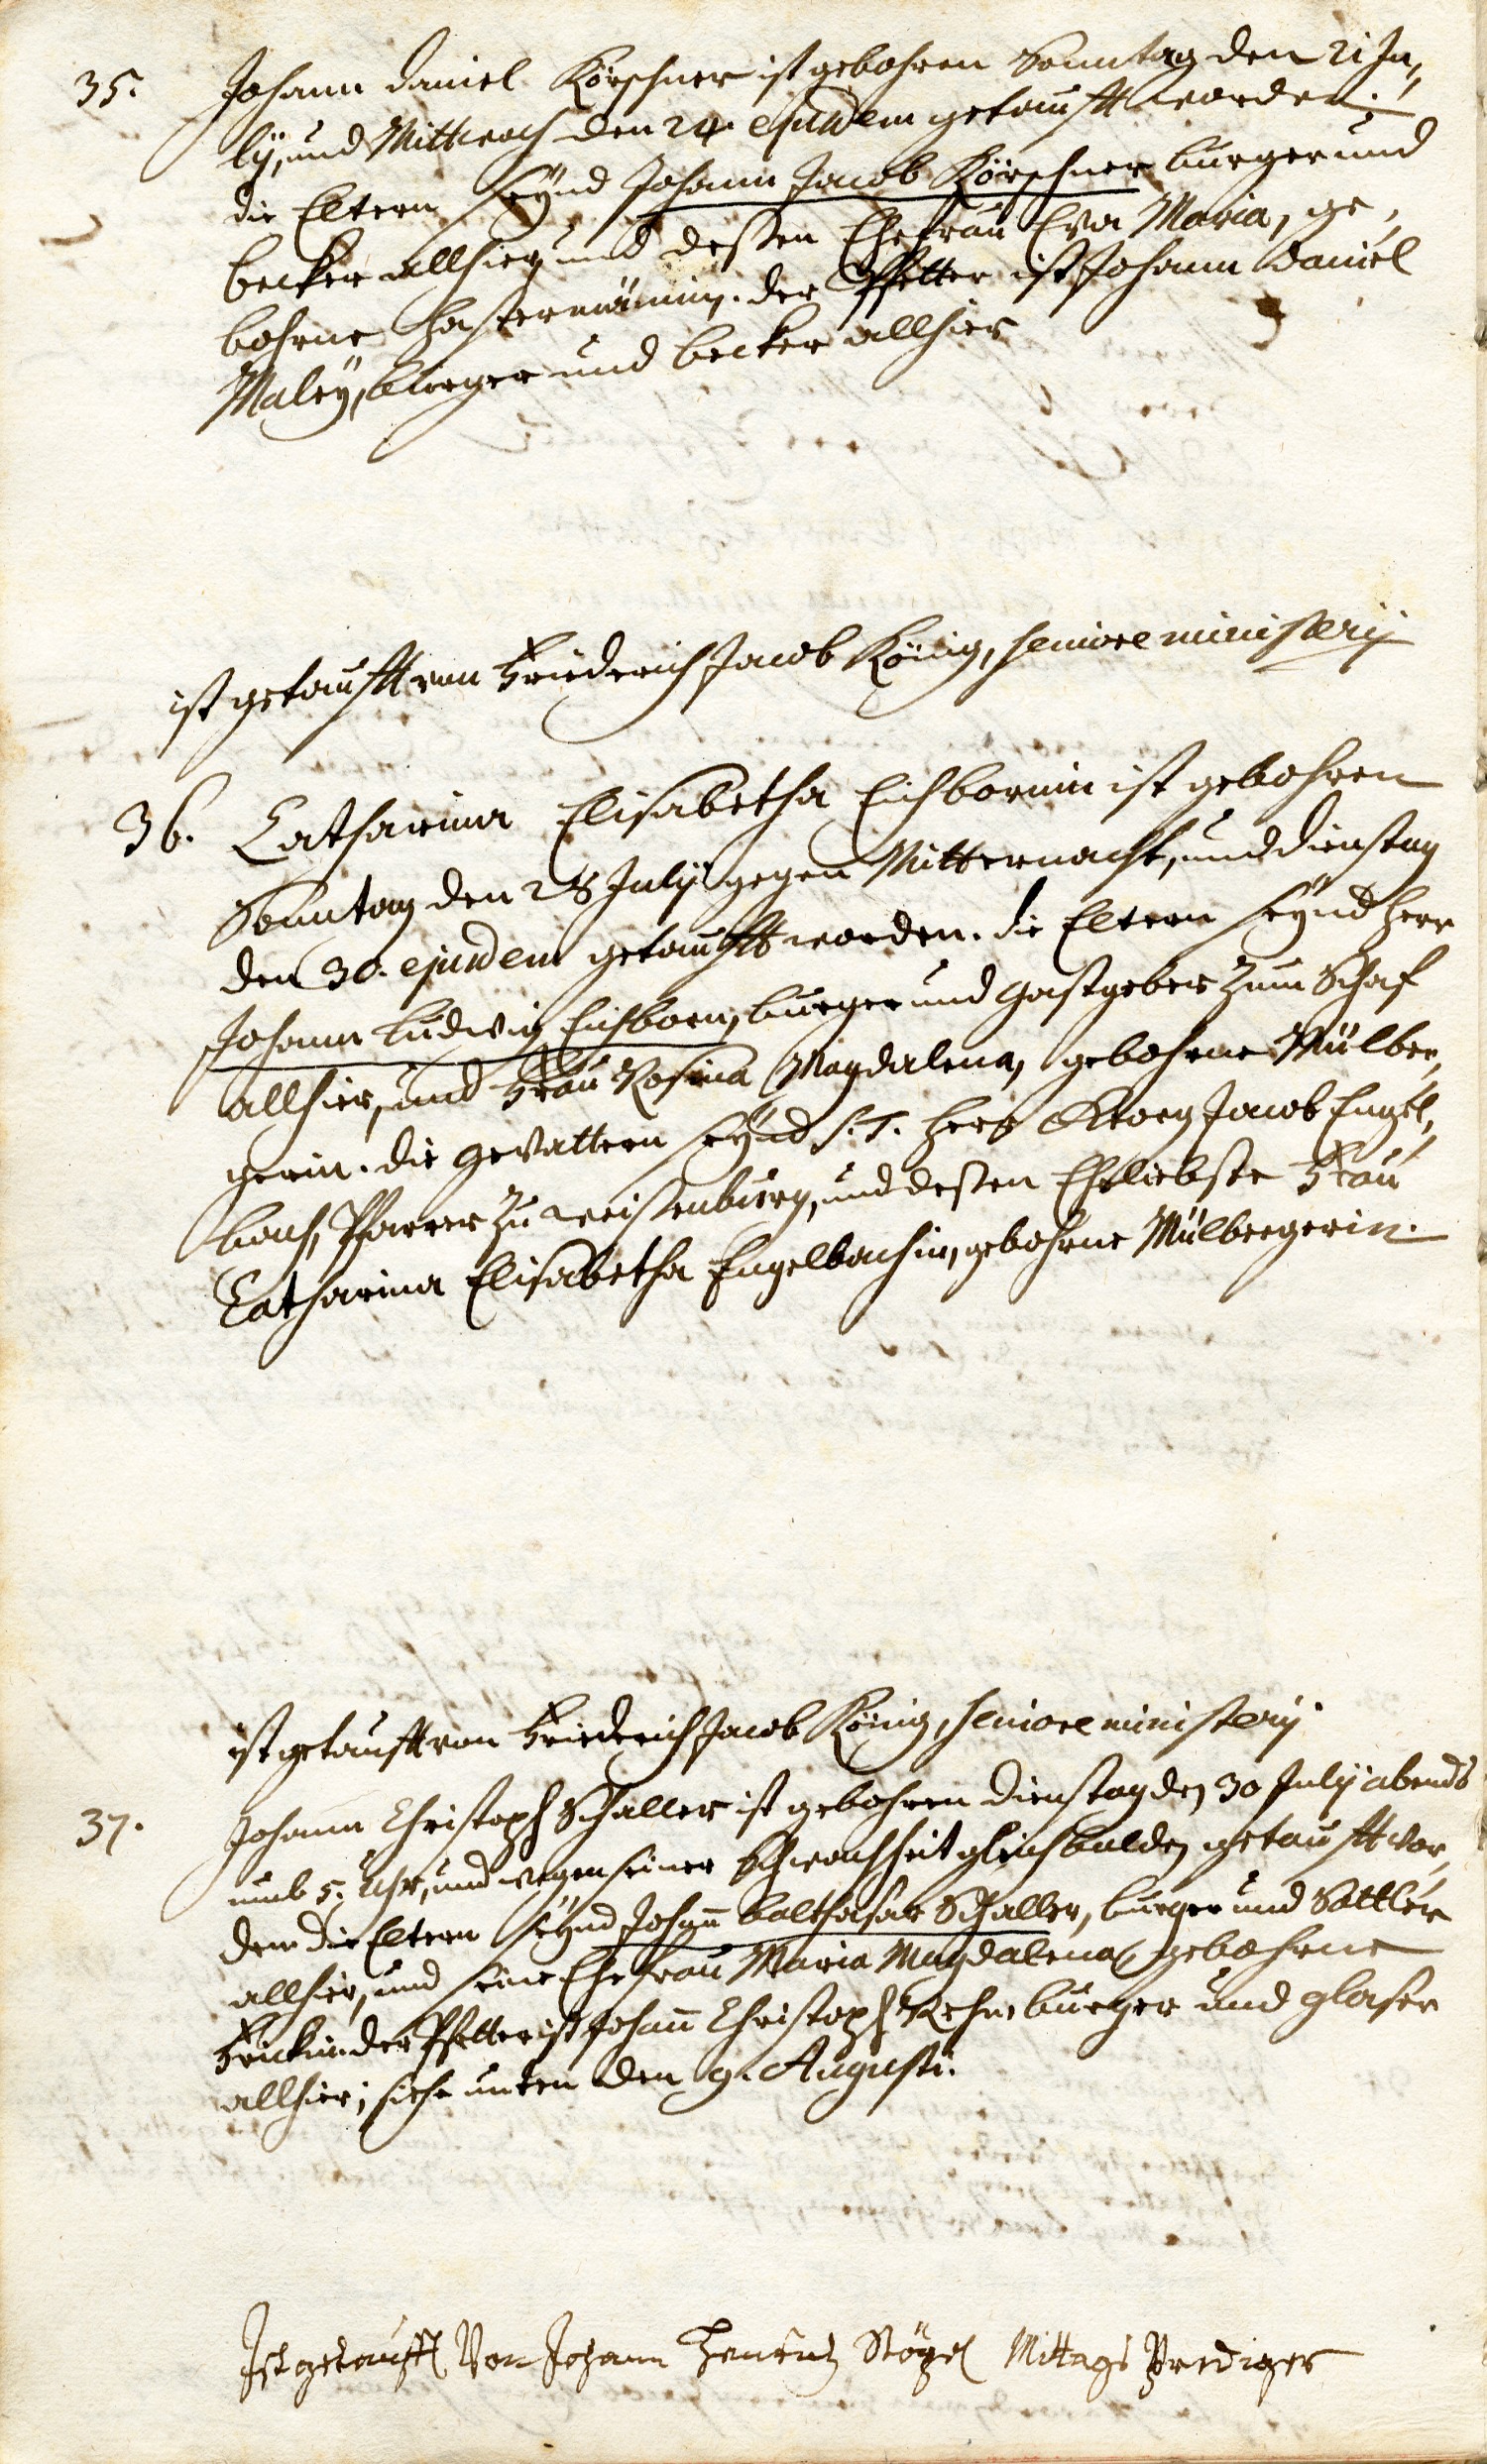 35. Johann Daniel Körschner ist gebohren Sonntag den 21 Ju-
ly, und Mittwoch den 24. ejusdem getaufft worden.
die Eltern seÿnd Johann Jacob Körschner burger und
becker allhier, und deßen Ehefrau Eva Maria, ge-
bohrne . der Pfetter ist Johann Daniel
Maleÿ, burger und becker allhier
ist getaufft von Friederich Jacob König, seniore ministerij
36. Catharina Elisabetha Eichbornin ist gebohren
Sonntag den 28 Julÿ gegen Mitternacht, und dienstag
den 30. ejusdem getaufft worden. die Eltern seÿnd herr
Johann Ludwig Eichborn, burger und Gastgeber zum Schaf
allhier, und Frau Rosina Magdalena, gebohrne Mülber-
gerin. die Gevattern seÿnd S. T. herr Georg Jacob Engel-
bach, Pfarrer zu Weissenburg, und deßen Eheliebste Frau
Catharina Elisabetha Engelbachin, gebohrne Mülbergerin.
ist getaufft von Friederich Jacob König, seniore ministerij
37. Johann Christoph Schaller ist gebohren dienstag den 30 Julÿ abends
umb 5. Uhr, und wegen seiner Schwachheit gleichbalden getaufft wor-
den die Eltern seÿnd Johann Balthasar Schaller, burger und Sattler
allhier, und seine Ehefrau Maria Magdalena gebohrne
der Pfetter ist Johann Christoph burger und glaser
allhier; siehe unten den 9. Augusti.
Ist getaufft Von Johann Henrich Stöpel Mittags Prediger